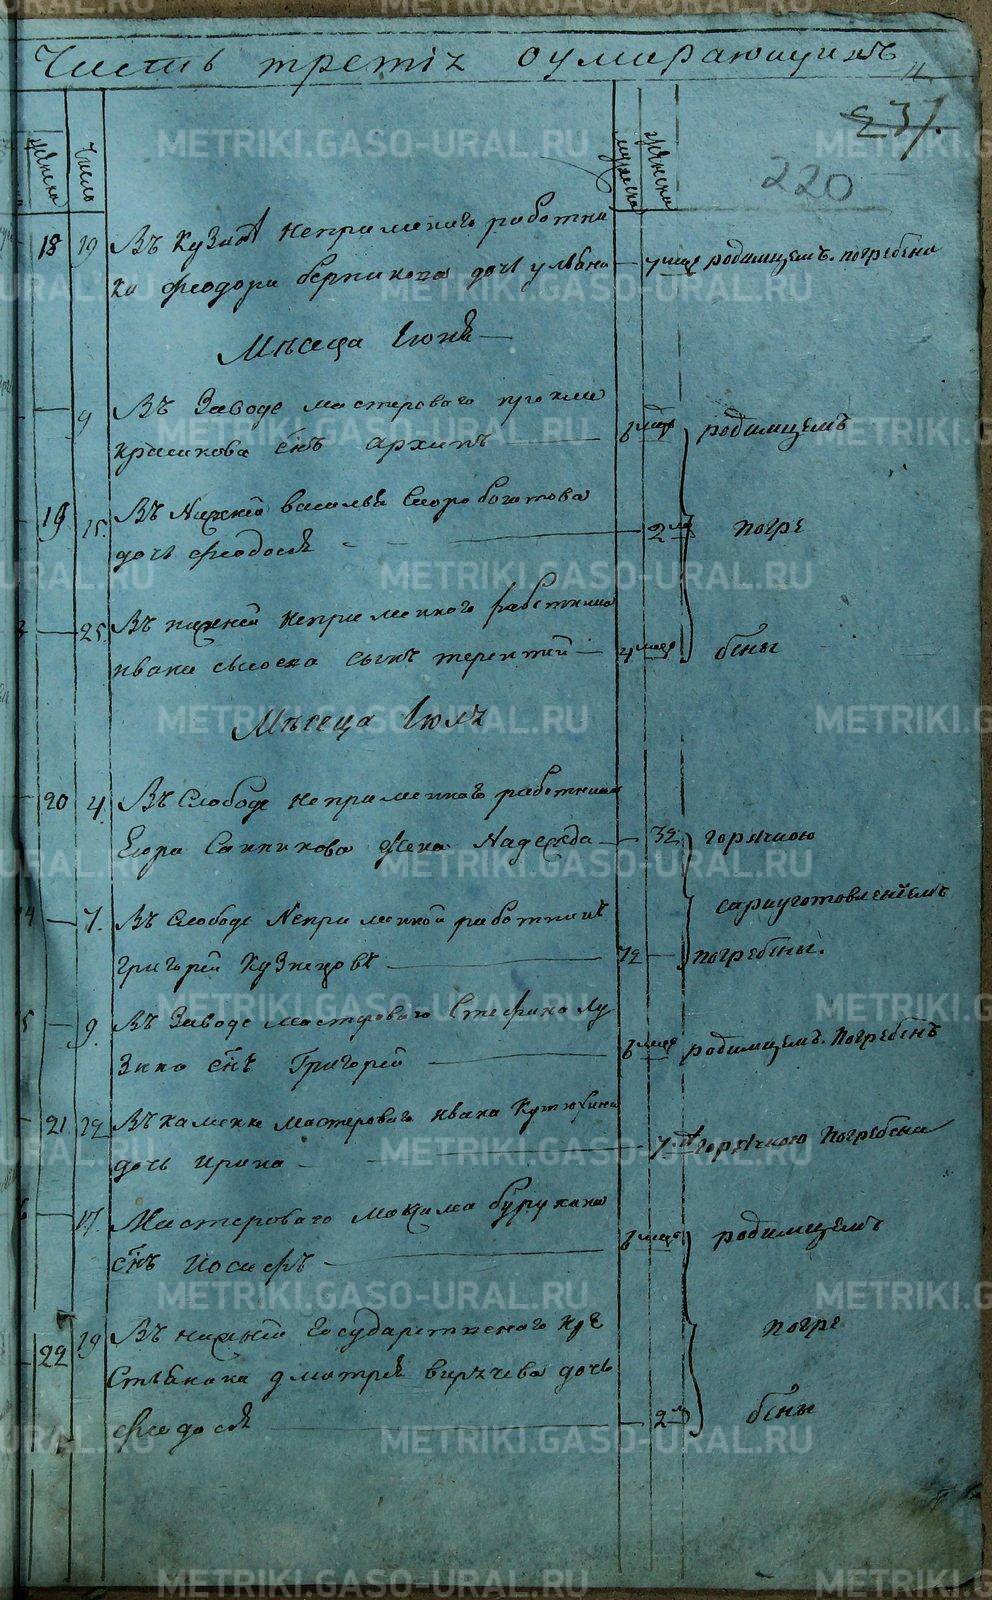 Часть третія оумирающихъ
237.
220
женска
Число
мужеска
женска
18 19 Въ Кузинѣ непременнаго работни
ка феодора берникова дочь ульяна 7 мце родимцемъ. погребена
Мѣсеца Іюнѣ
9 Въ Заводе мастероваго
красикова снъ архипъ 6 мце родимцемъ
19 15. Въ Нижней василья Скоробогатова
дочь феодосіѣ 2 мц погре
25. Въ нижней непременнаго работника
ивана сысоева сынъ терентей 4 мце бены
Мѣсеца Іюлѣ
20 4. Въ Слободе непременнаго работника
Егора Санникова жена Надежда 32 горячкою
7. Въ Слободе Непременной работникъ соприуготовленіемъ
григорей Кузнецовъ 72 погребены.
9. Въ Заводе мастероваго Стефана Лу
зина снъ Григорей 6 мце родимцемъ. Погребенъ
21 12 Въ каменке мастероваго ивана Кутюхина
дочь ирина 7. горячкою Погребена
17. Мастероваго максима бурухина
снъ Иосифъ 6 мце родимцемъ
22 19 Въ нижней Государственнаго кре погре
стьянина дмитрея дочь
феодосіѣ 2 м бены
METRIKI.GASO-URAL.RU